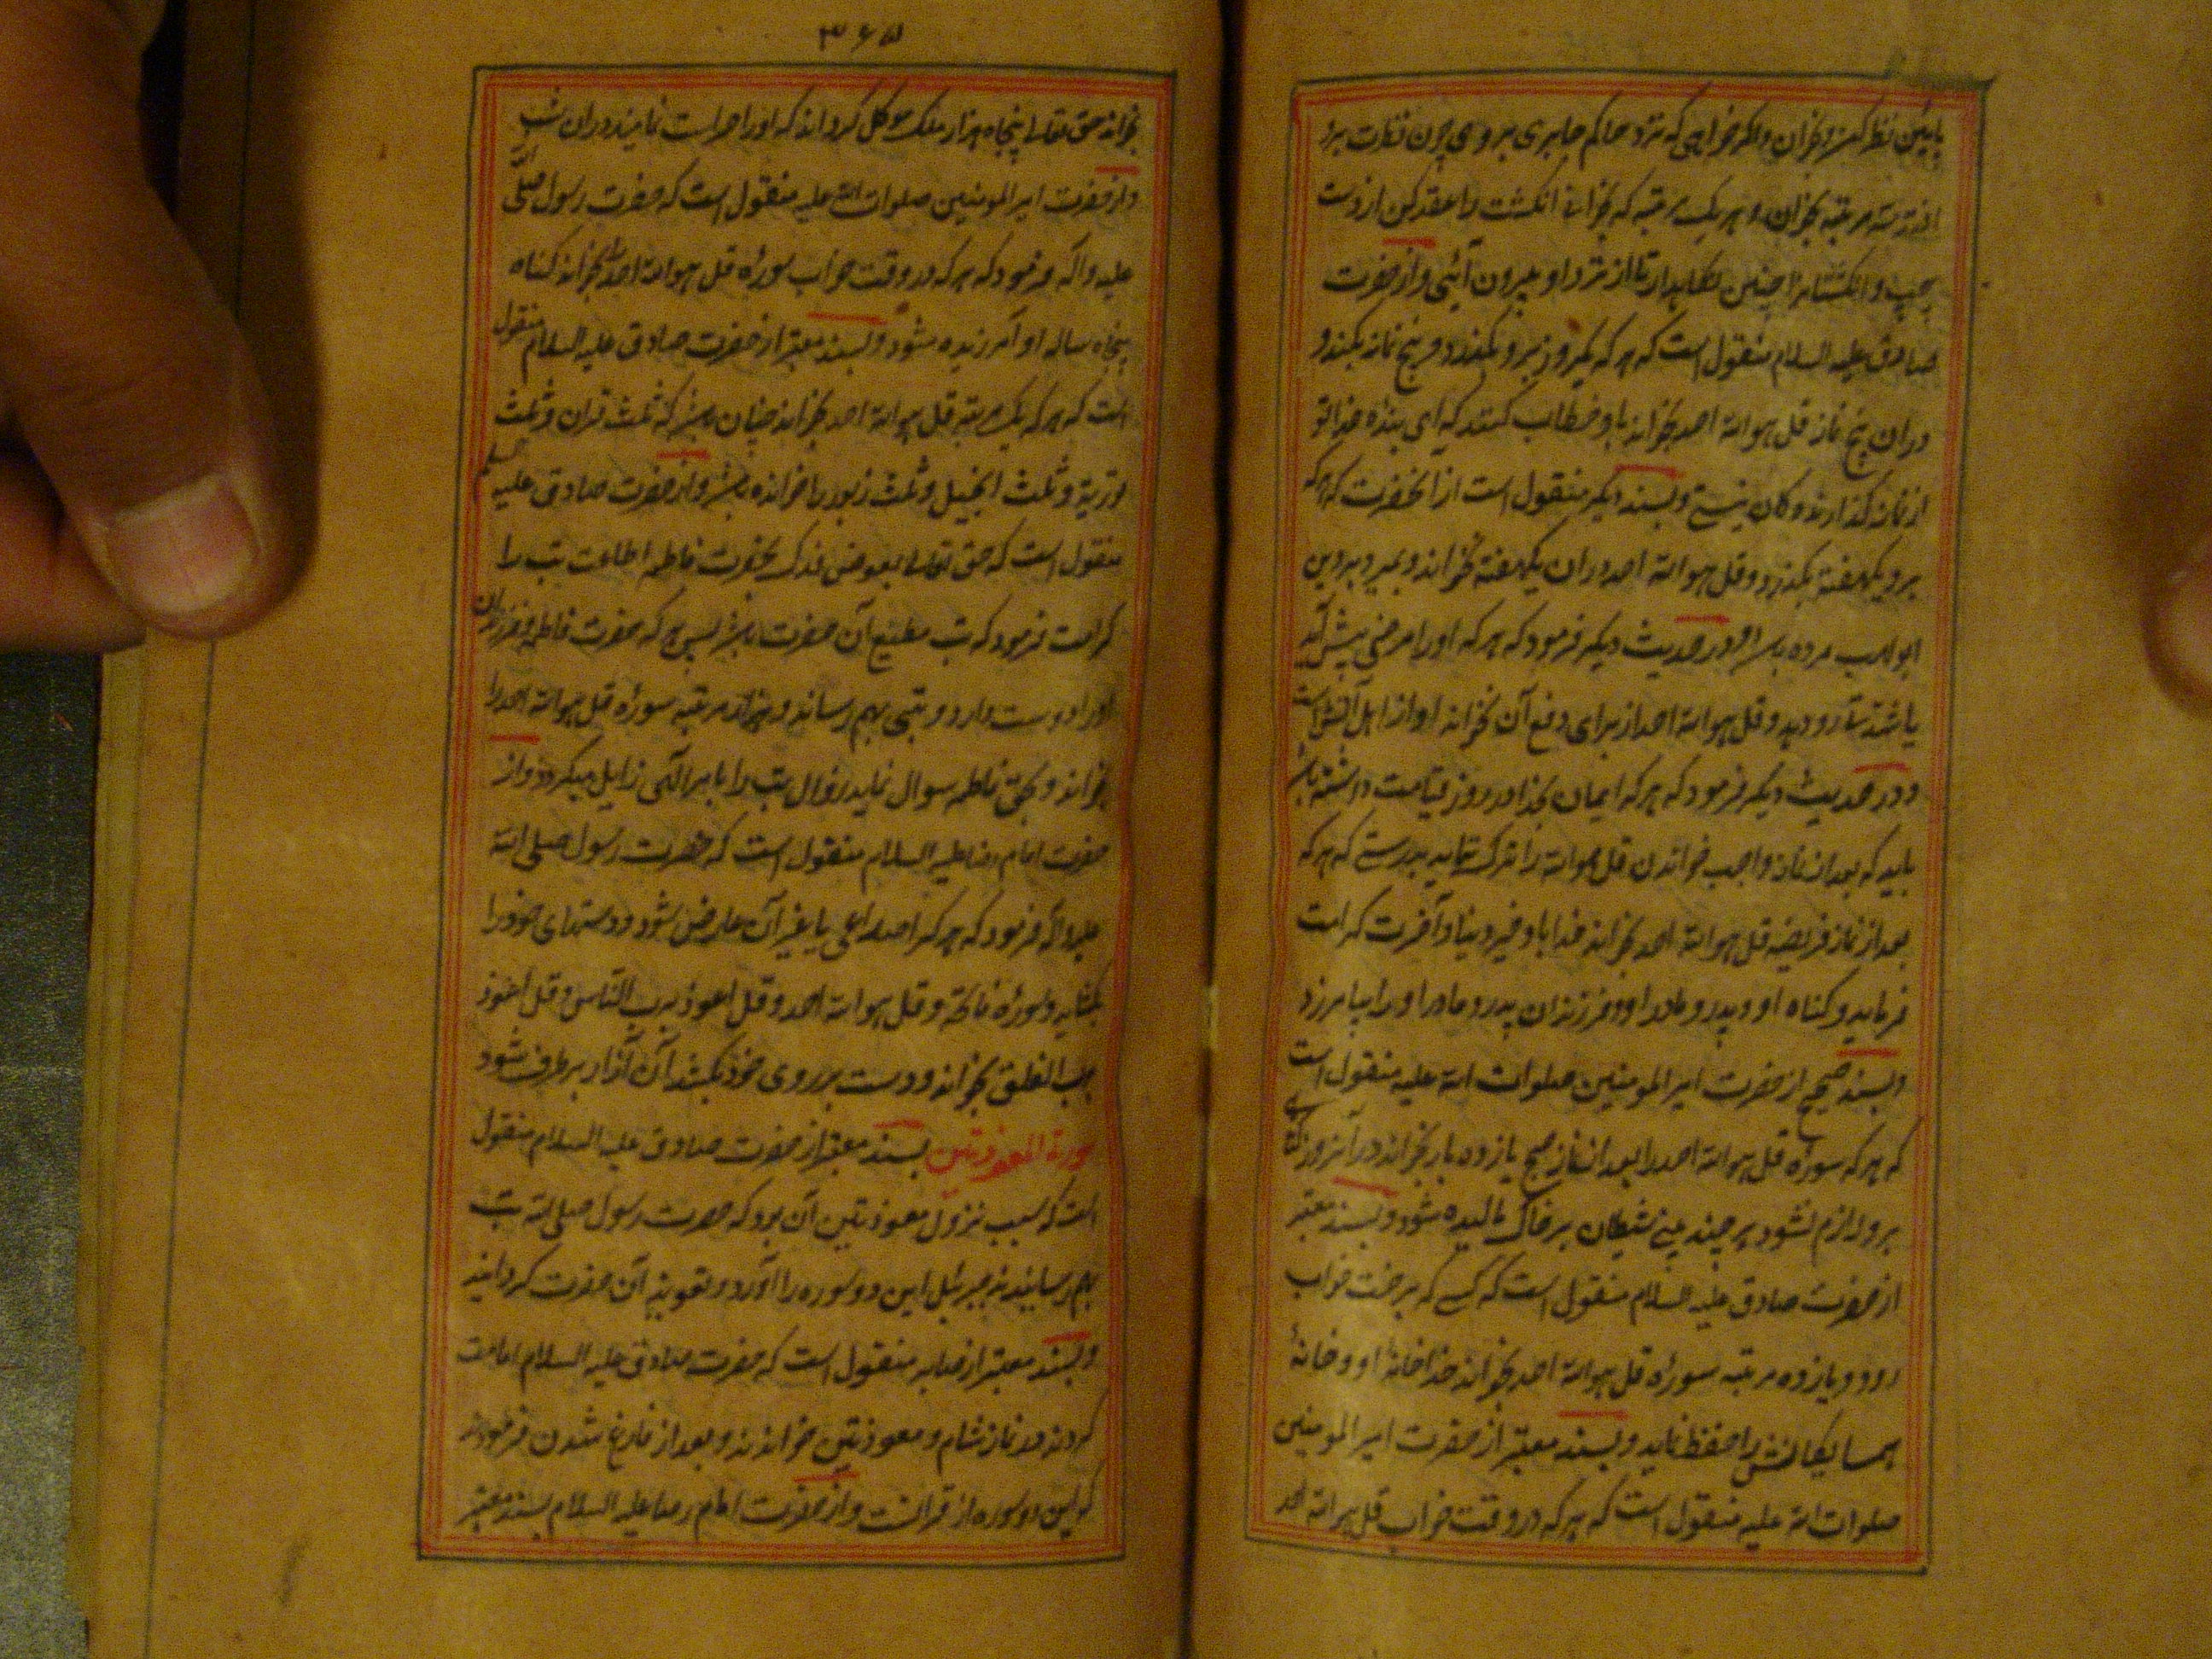 پایین نظر کن و بخوان و اگر خواهی که نزد حاکم جابری بروی چون نظرت برو
افتد سه مرتبه بخوان و هر یک مرتبه که بخوانی انکشت را عقد کن از دست
چپ و انکشتانرا چنین نکاهدار تا از نزد او بیرون آئی و از حضرت
صادق علیه السلام منقول است که هر که یکروز برو بکذرد و پنج نماز بکند و
دران پنج نماز قل هو الله احد نخواند باو خطاب کنند که ای بنده خدا تو
از نماز کذارندوکان نیستی و بسند دیکر منقول است از انحضرت که هر که
برو یکهفته بکذرد و قل هو الله احد دران یکهفته نخواند و بمیرد بر دین
ابو لهب مرده باشد و در حدیث دیکر فرمود که هر که اورا مرضی پیش آید
یا شدتی رو دهد و قل هو الله احد از برای دفع آن نخواند او از اهل آتش است
و در حدیث دیکر فرمود که هر که ایمان بخدا و روز قیامت داشته باشد
باید که بعد از نماز واجب خواندن قل هو الله را ترک ننماید بدرستی که هر که
بعد از نماز فریضه قل هو الله احد بخواند خدا باو خیر دنیا و آخرت کرامت
فرماید و کناه او و پدر و مادر او و فرزندان پدر و مادر او را بیامرزد
و بسند صحیح از حضرت امیر المومنین صلوات الله علیه منقول است
که هر که سوره قل هو الله احد را بعد از نماز صبح یازده بار بخواند در آنروز کناهی
برو لازم نشود هر چند بینی شیطان بر خاک مالیده شود و بسند معتبر
از حضرت صادق علیه السلام منقول است که کسی که برخت خواب
رود و یازده مرتبه سوره قل هو الله احد بخواند خدا خانهٔ او و خانهٔ
همسایکانش را حفظ نماید و بسند معتبر از حضرت امیر المومنین
صلوات الله علیه منقول است که هر که در وقت خواب قل هو الله احد
۳۶۵
بخواند حق تعالی پنجاه هزار ملک موکل کرداند که اورا حراست نمایند دران شب
و از حضرت امیر المومنین صلوات الله علیه منقول است که حضرت رسول صلی الله
علیه و آله فرمود که هر که در وقت خواب سوره قل هو الله احد را بخواند کناه
پنجاه ساله او آمرزیده شود و بسند معتبر از حضرت صادق علیه السلام منقول
است که هر که یک مرتبه قل هو الله احد بخواند چنان باشد که ثلث قران و ثلث
توریة و ثلث انجیل و ثلث زبور را خوانده باشد و از حضرت صادق علیه السلام
منقول است که حق تعالی بعوض فدک بحضرت فاطمه اطاعت تب را
کرامت فرمود که تب مطیع آن حضرت باشد پس هر که حضرت فاطمه و فرزندان
اورا دوست دارد و تبی بهم رساند و هزار مرتبه سوره قل هو الله احد را
بخواند و بحق فاطمه سوال نماید زوال تب را بامر الهی زایل میکردد و از
حضرت امام رضا علیه السلام منقول است که حضرت رسول صلی الله
علیه و آله فرمود که هر کرا صداعی یا غیر آن عارض شود و دستهای خود را
بکشاید و سوره فاتحه و قل هو الله احد و قل اعوذ برب الناس و قل اعوذ
برب الفلق بخواند و دست بر روی خود بکشد آن آزار بر طرف شود
سورة المعوذتین بسند معتبر از حضرت صادق علیه السلام منقول
است که سبب نزول معوذتین آن بود که حضرت رسول صلی الله تب
بهم رسانیدند جبرئیل این دو سوره را آورد و تعویذ آن حضرت کردانید
و بسند معتبر از صابر منقول است که حضرت صادق علیه السلام امامت
کردند در نماز شام و معوذتین خواندند و بعد از فارغ شدن فرمودند
که این دو سوره از قرانست و از حضرت امام رضا علیه السلام بسند معتبر